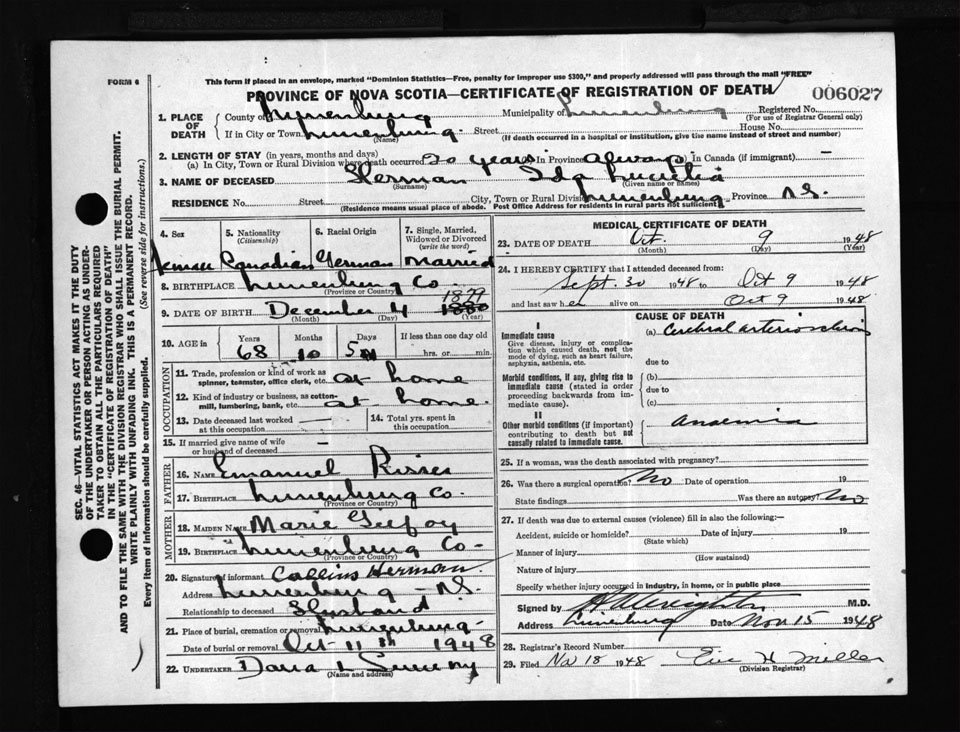 FORM 6
This form if placed in an envelope, marked "Dominion Statistics—Free, penalty for improper use $300," and properly addressed will pass through the mail "FREE"
PROVINCE OF NOVA SCOTIA—CERTIFICATE OF REGISTRATION OF DEATH
006027
1. PLACE OF DEATH
County of Lunenburg Municipality of Lunenburg Registered No.
(Name) (For use of Registrar General only)
If in City or Town Lunenburg Street House No.
(Name) (If death occurred in a hospital or institution, give the name instead of street and number)
2. LENGTH OF STAY (in years, months and days)
(a) In City, Town or Rural Division where death occurred 20 years In Province Always In Canada (if immigrant) —
3. NAME OF DECEASED Herman Ida
(Surname) (Given name or names)
RESIDENCE No. Street City, Town or Rural Division Lunenburg Province N.S.
(Residence means usual place of abode. Post Office Address for residents in rural parts not sufficient)
4. Sex
5. Nationality (Citizenship)
6. Racial Origin
7. Single, Married, Widowed or Divorced (write the word)
Female Canadian German Married
8. BIRTHPLACE Lunenburg Co.
(Province or Country)
1879
9. DATE OF BIRTH December 4 1880
(Month) (Day) (Year)
10. AGE in Years Months Days If less than one day old
68 10 5 hrs. or min.
OCCUPATION
11. Trade, profession or kind of work as spinner, teamster, office clerk, etc. at home
12. Kind of industry or business, as cotton-mill, lumbering, bank, etc. at home.
13. Date deceased last worked at this occupation
14. Total yrs. spent in this occupation
15. If married give name of wife or husband of deceased —
FATHER
16. NAME Emanuel Risser
17. BIRTHPLACE Lunenburg Co.
MOTHER
18. MAIDEN NAME Marie
19. BIRTHPLACE Lunenburg Co—
(Province or Country)
20. Signature of informant Collins Herman
Address Lunenburg — N.S.
Relationship to deceased Husband
21. Place of burial, cremation or removal Lunenburg—
Date of burial or removal Oct 11th 1948
22. UNDERTAKER
(Name and address)
MEDICAL CERTIFICATE OF DEATH
23. DATE OF DEATH Oct. 9 1948
(Month) (Day) (Year)
24. I HEREBY CERTIFY that I attended deceased from:
Sept. 30 1948 to Oct 9 1948
and last saw her alive on Oct 9 1948
CAUSE OF DEATH
I
Immediate cause
Give disease, injury or complication which caused death, not the mode of dying, such as heart failure, asphyxia, asthenia, etc.
(a) Cerebral arteriosclerosis
due to
Morbid conditions, if any, giving rise to immediate cause (stated in order proceeding backwards from immediate cause).
(b)
due to
(c)
II
Other morbid conditions (if important) contributing to death but not causally related to immediate cause.
Anaemia
25. If a woman, was the death associated with pregnancy?
26. Was there a surgical operation? No Date of operation 19
State findings Was there an autopsy? No
27. If death was due to external causes (violence) fill in also the following:—
Accident, suicide or homicide? Date of injury 19
(State which)
Manner of injury
(How sustained)
Nature of injury
Specify whether injury occurred in industry, in home, or in public place
Signed by M.D.
Address Lunenburg Date Nov 15 1948
28. Registrar's Record Number
29. Filed Nov 18 1948
(Division Registrar)
SEC. 46—VITAL STATISTICS ACT MAKES IT THE DUTY
OF THE UNDERTAKER OR PERSON ACTING AS UNDER-
TAKER TO OBTAIN ALL THE PARTICULARS REQUIRED
IN THE "CERTIFICATE OF REGISTRATION OF DEATH"
AND TO FILE THE SAME WITH THE DIVISION REGISTRAR WHO SHALL ISSUE THE BURIAL PERMIT.
WRITE PLAINLY WITH UNFADING INK. THIS IS A PERMANENT RECORD.
Every item of information should be carefully supplied. (See reverse side for instructions.)